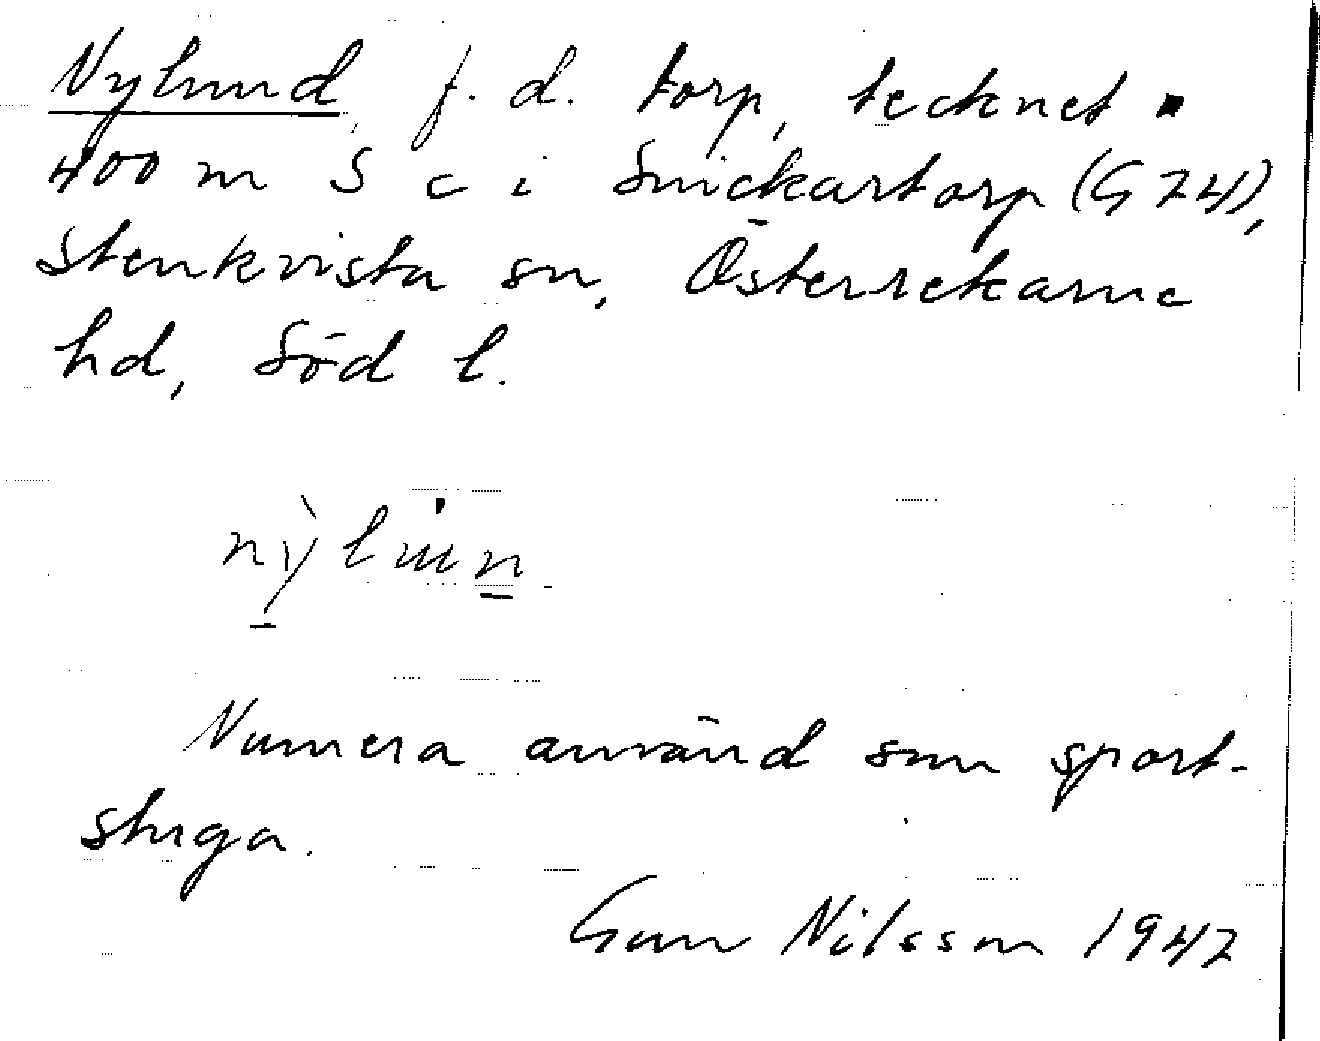 Nylund, f. d. torp, tecknet ▪
400 m S c i Snickartorp (G 24),
Stenkvista sn, Österrekarne
hd, Söd l.
nỳlun
Numera använd som sport-
stuga.
Gun Nilsson 1942